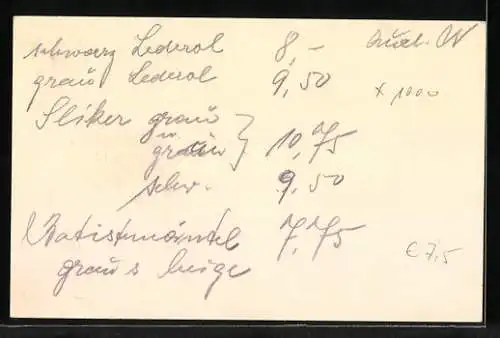 schwarz Lederol 8,-
grau Lederol 9,50
x 1000
Sliker grau
grün } 10,75
schw. 9,50
Batistmäntel 7,75
grau s beige
€ 7,5